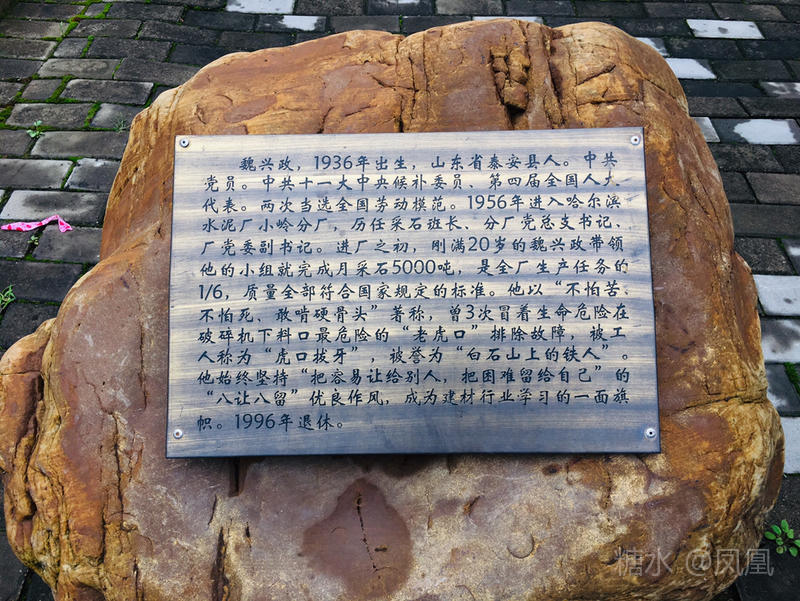 魏兴政，1936年出生，山东省泰安县人。中共
党员。中共十一大中央候补委员、第四届全国人大
代表。两次当选全国劳动模范。1956年进入哈尔滨
水泥厂小岭分厂，历任采石班长、分厂党总支书记、
厂党委副书记。进厂之初，刚满20岁的魏兴政带领
他的小组就完成月采石5000吨，是全厂生产任务的
1/6，质量全部符合国家规定的标准。他以“不怕苦、
不怕死、敢啃硬骨头”著称，曾3次冒着生命危险在
破碎机下料口最危险的“老虎口”排除故障，被工
人称为“虎口拔牙”，被誉为“白石山上的铁人”。
他始终坚持“把容易让给别人，把困难留给自己”的
“八让八留”优良作风，成为建材行业学习的一面旗
帜。1996年退休。
糖水 @凤凰